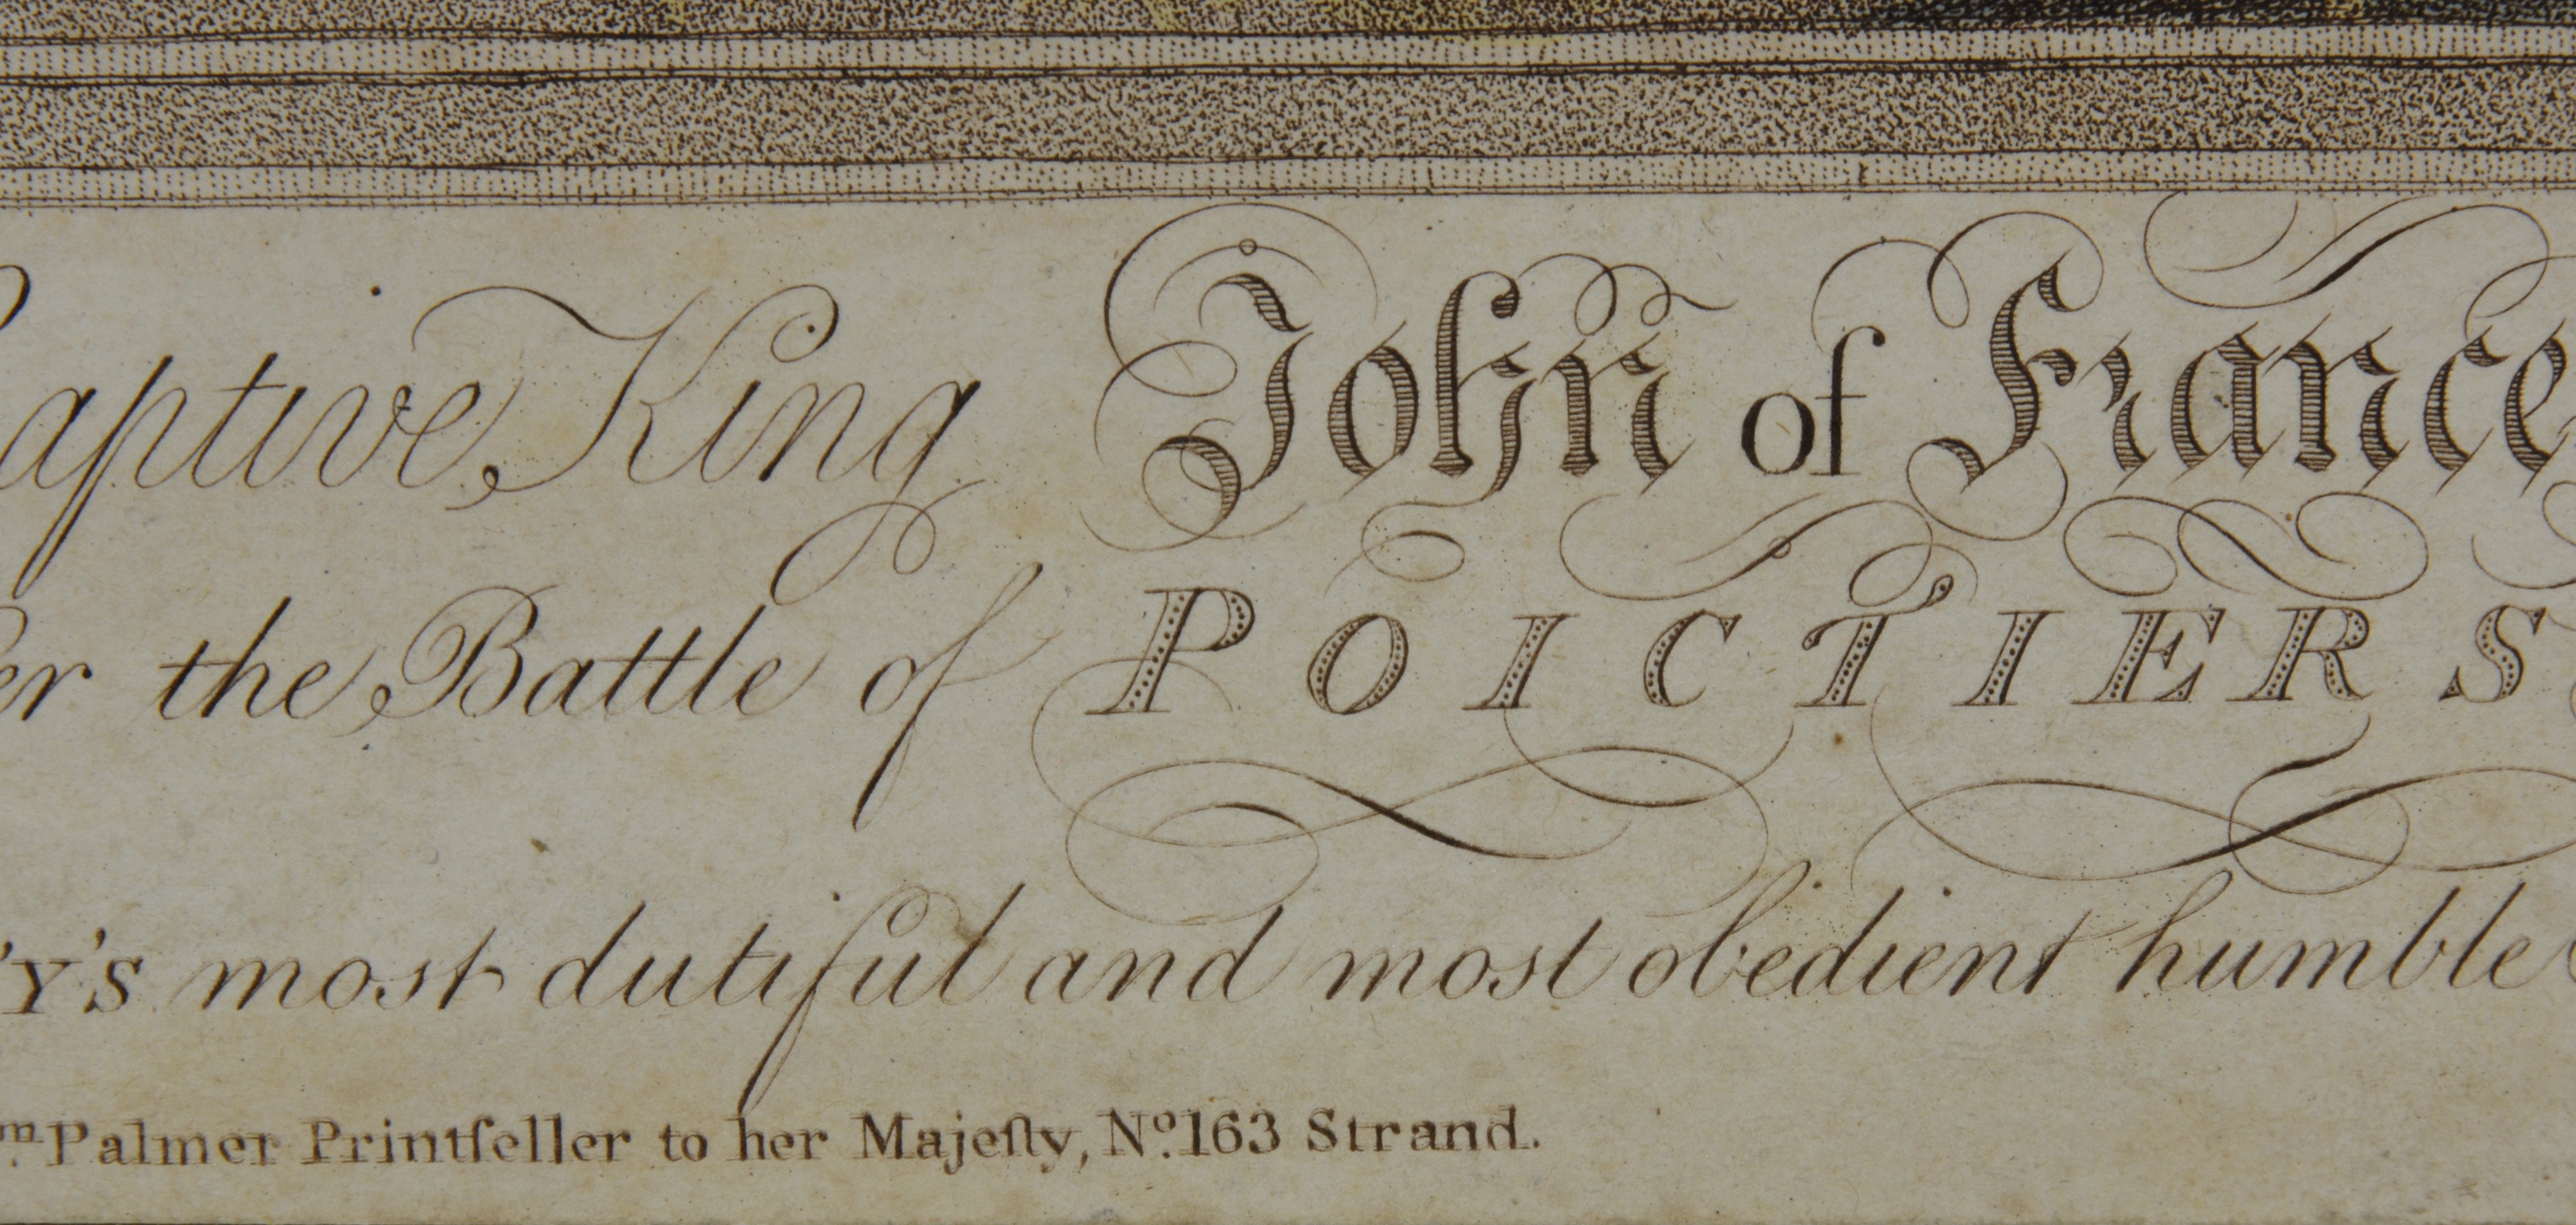 aptive King John of France
er the Battle of POICTIERS
'Y's most dutiful and most obedient humble
m. Palmer Printſeller to her Majeſty, No. 163 Strand.